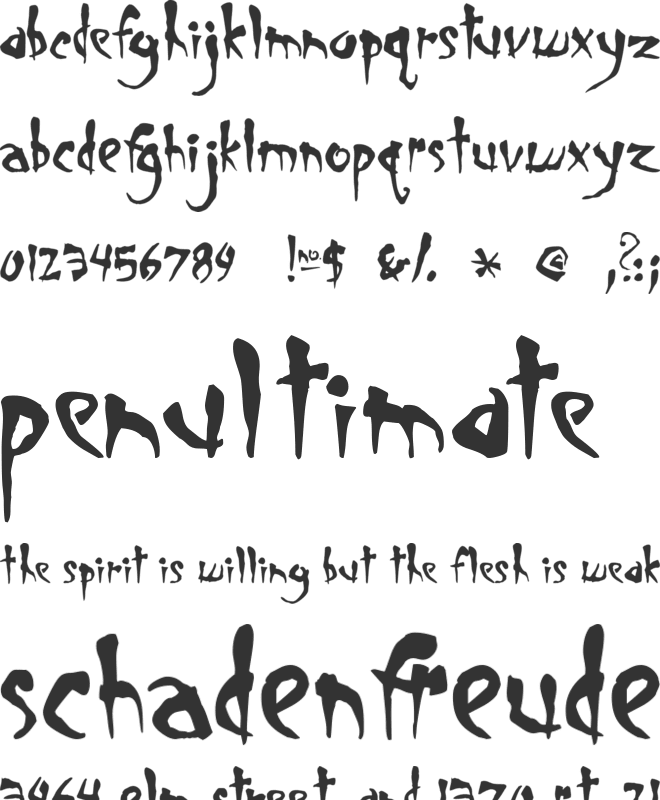 abcdefghijklmnopqrstuvwxyz
abcdefghijklmnopqrstuvwxyz
0123456789 !no.$ &/. * @ ,?:;
penultimate
the spirit is willing but the flesh is weak
schadenfreude
3964 elm street and 1370 rt. 21